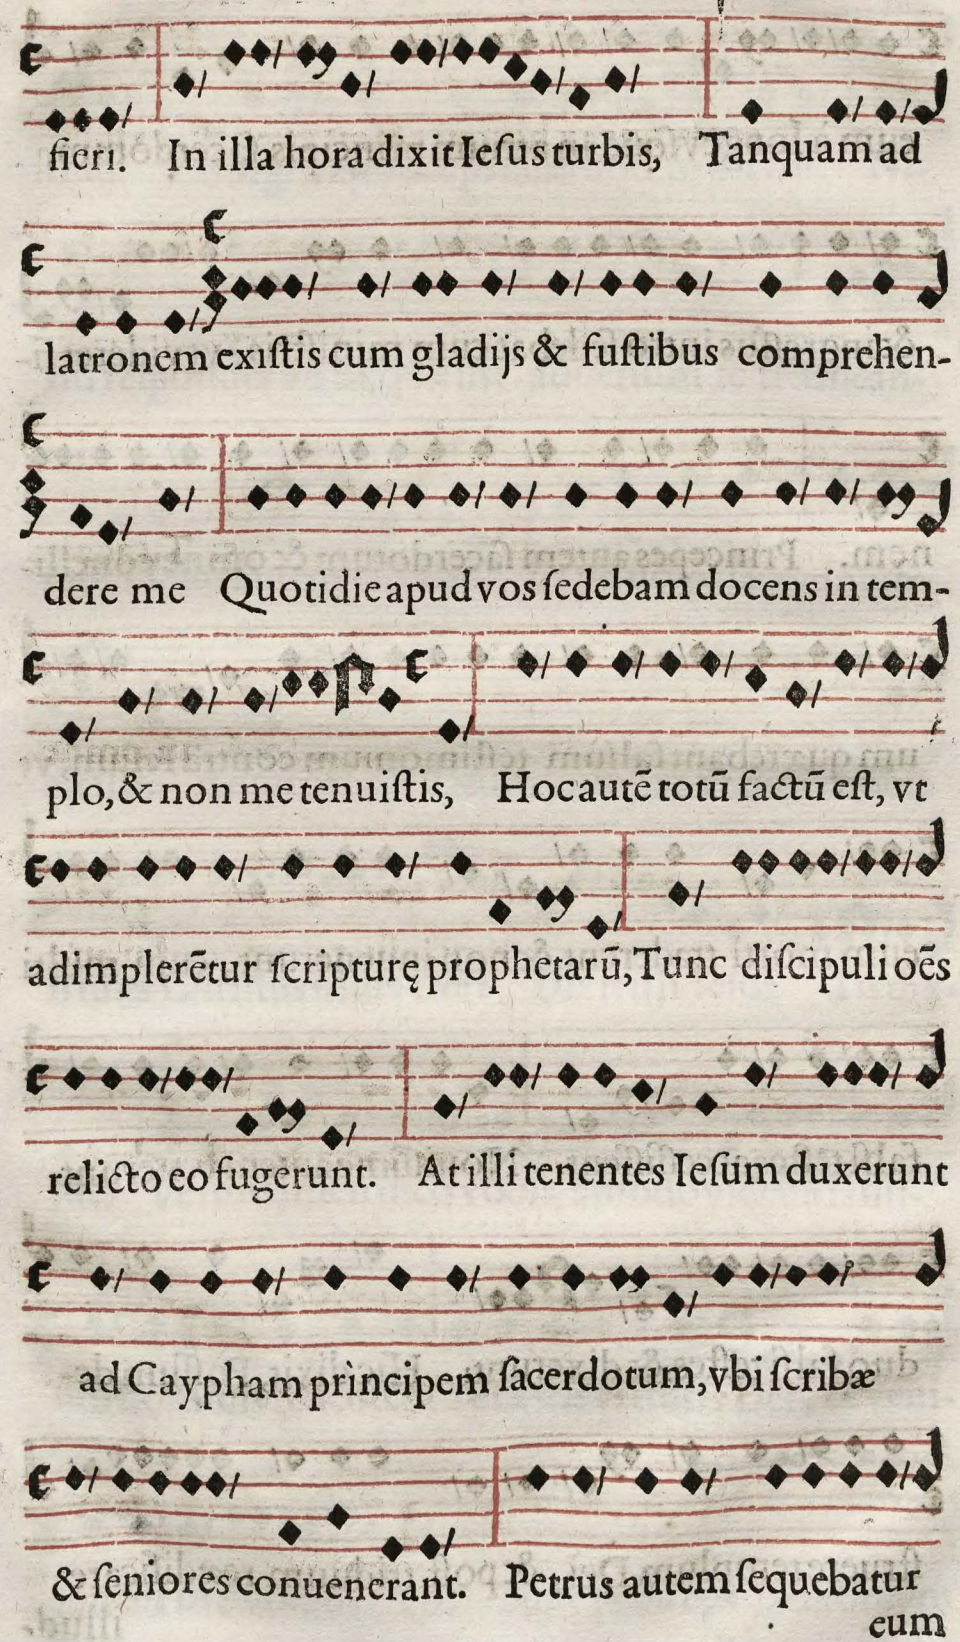 fieri. In illa hora dixit Ieſus turbis, Tanquam ad
latronem exiſtis cum gladijs & fuſtibus comprehen-
dere me Quotidie apud vos ſedebam docens in tem-
plo, & non me tenuiſtis, Hoc autē totū factū eſt, vt
adimplerētur ſcripturę prophetarū, Tunc diſcipuli oēs
relicto eo fugerunt. At illi tenentes Ieſum duxerunt
ad Caypham prìncipem ſacerdotum, vbi ſcribæ
& ſeniores conuenerant. Petrus autem ſequebatur
eum